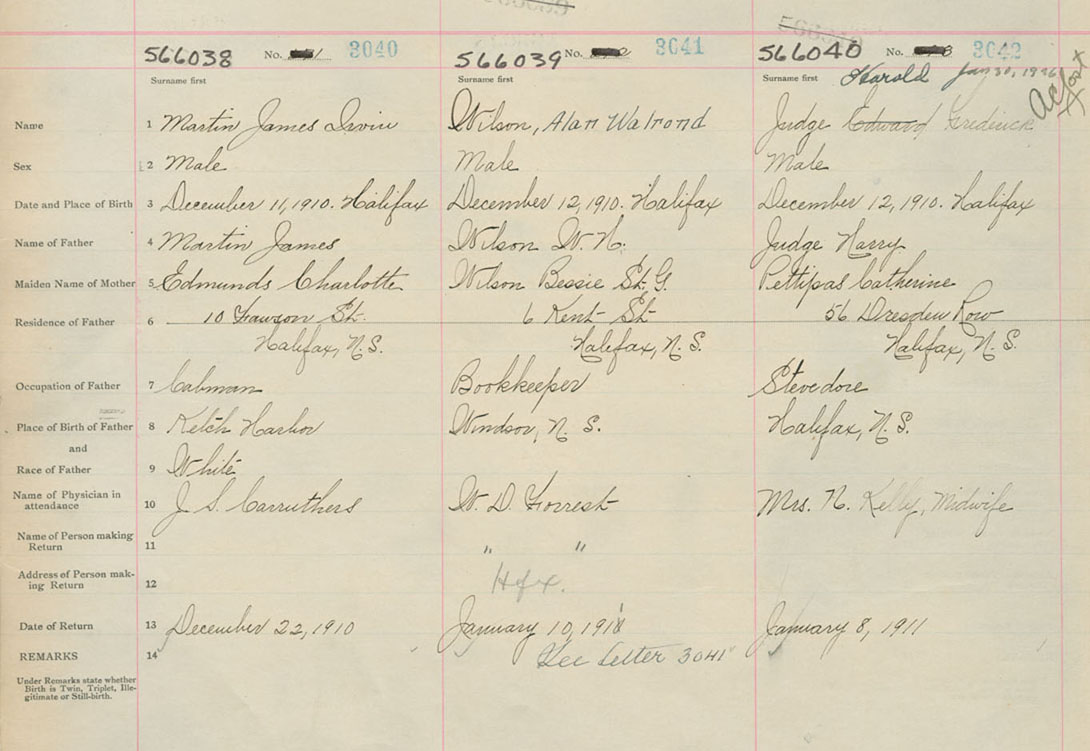 566038 No. 3040 566039 No. 3041 566040 No. 3042
Surname first Surname first Surname first Harold Jan 30, 1926
Name 1 Martin James Irvin Wilson, Alan Walrond Judge Edward Frederick
Sex 2 Male Male Male
Date and Place of Birth 3 December 11, 1910. Halifax December 12, 1910. Halifax December 12, 1910. Halifax
Name of Father 4 Martin James Wilson W. H. Judge Harry
Maiden Name of Mother 5 Edmunds Charlotte Wilson Bessie St. G. Pettipas Catherine
Residence of Father 6 10 St. 6 Kent St 56 Dresden Row
Halifax, N.S. Halifax, N.S. Halifax, N.S.
Occupation of Father 7 Cabman Bookkeeper Stevedore
Place of Birth of Father 8 Ketch Harbor Windsor, N.S. Halifax, N.S.
and
Race of Father 9 White
Name of Physician in
attendance 10 J. S. Carruthers W. D. Forrest Mrs. N. Kelly, Midwife
Name of Person making
Return 11 " "
Address of Person mak-
ing Return 12 Hfx.
Date of Return 13 December 22, 1910 January 10, 1911 January 8, 1911
REMARKS 14 See Letter 3041
Under Remarks state whether
Birth is Twin, Triplet, Ille-
gitimate or Still-birth.